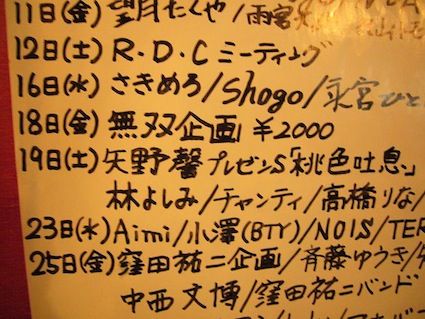 11日(金) 望月たくや/雨宮
12日(土) R・D・Cミーティング
16日(水) さきめろ/Shogo/
18日(金) 無双企画 ¥2000
19日(土) 矢野馨プレゼンS「桃色吐息」
林よしみ/チャンティ/高橋りな/
23日(水) Aimi/小澤(BTY)/NOIS/TER
25日(金) 窪田祐二企画/斉藤ゆうき/
中西文博/窪田祐二バンド